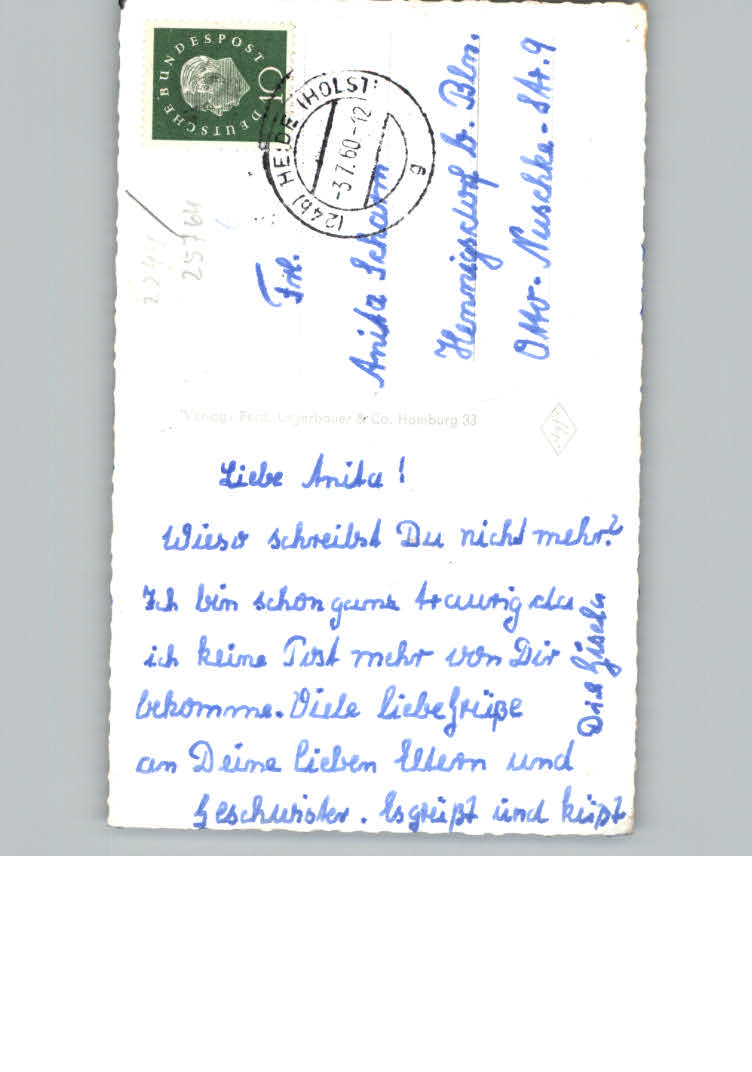 DEUTSCHE BUNDESPOST
(24b) HEIDE (HOLST)
-3.7.60-12
g
25764
Frl.
Anita Scharm
Hennigsdorf b. Bln.
Otto-Nuschke-Str. 9
Verlag: Ferd. Lagerbauer & Co. Hamburg 33
Liebe Anita!
Wieso schreibst Du nicht mehr?
Ich bin schon ganz traurig da
ich keine Post mehr von Dir
bekomme. Viele liebe Grüße
an Deine lieben Eltern und
Geschwister. Es grüßt und küßt
Dich Gisela